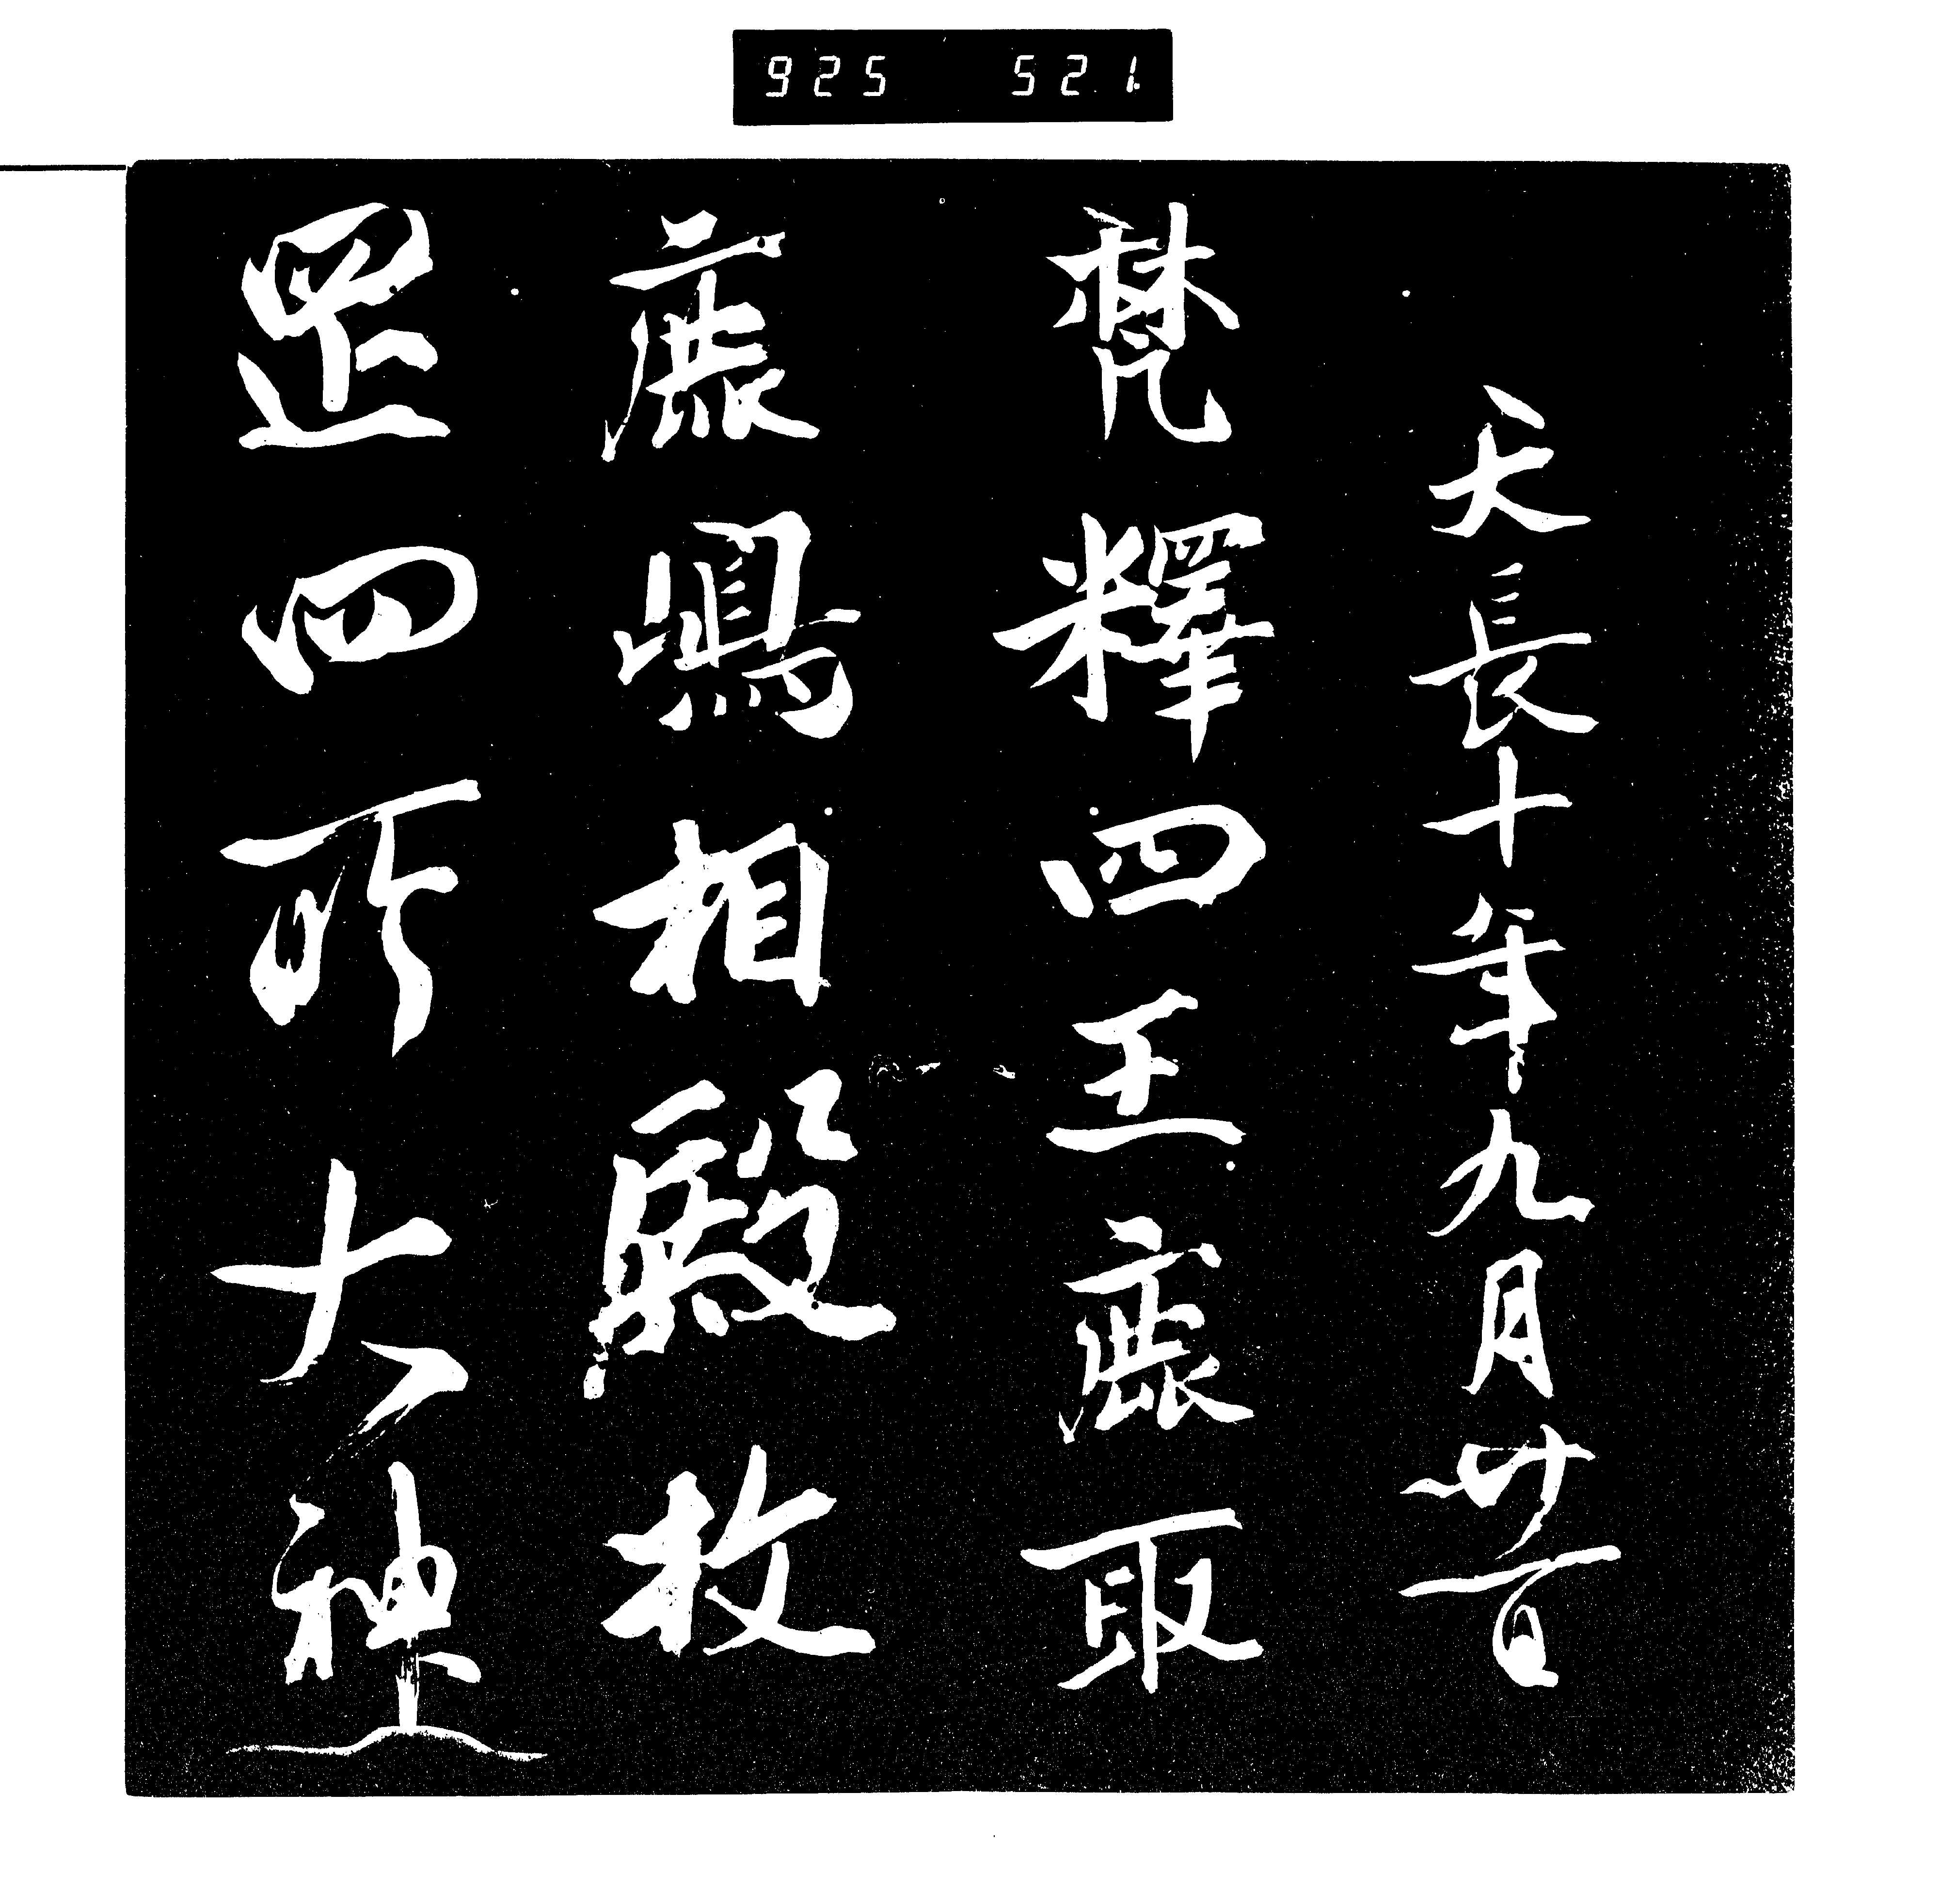 925 521
天長十年九月廿一日
梵釋四王鹿取
鹿嶋相殿枚
罡四所大神